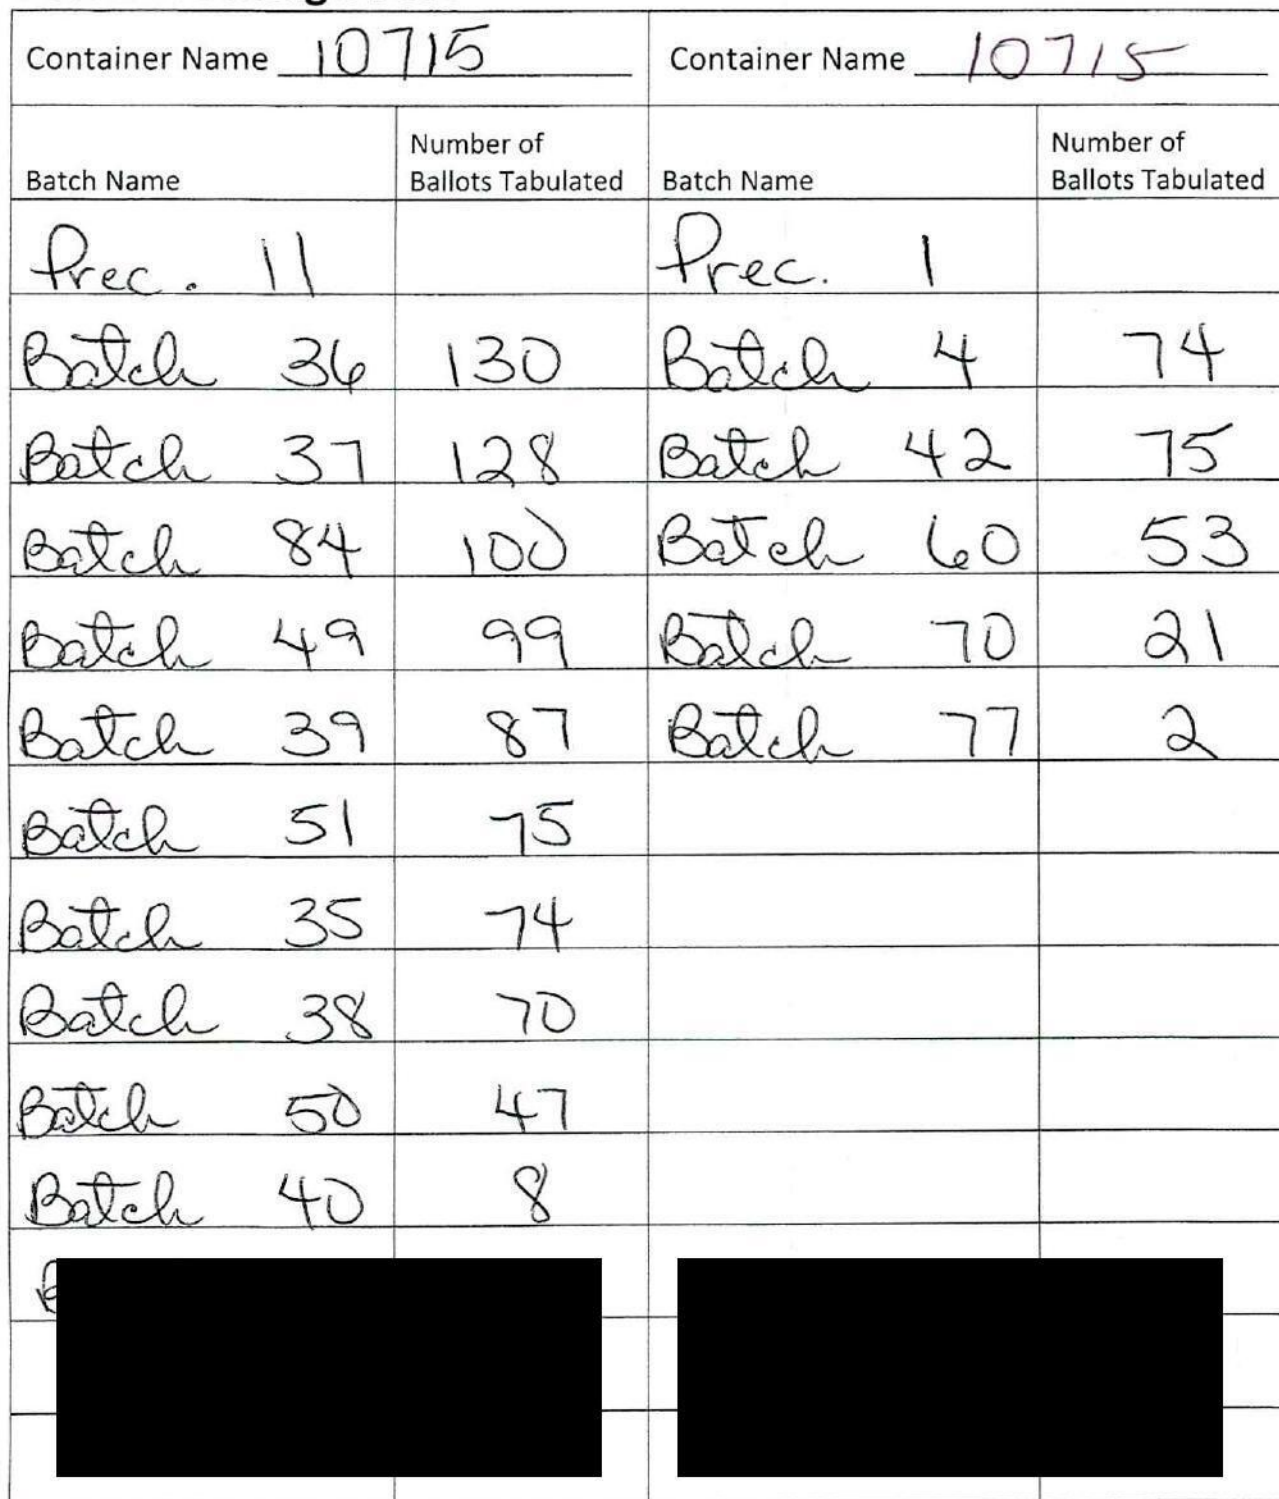 Container Name 10715 Container Name 10715
Batch Name Number of Ballots Tabulated Batch Name Number of Ballots Tabulated
Prec. 11 Prec. 1
Batch 36 130 Batch 4 74
Batch 37 128 Batch 42 75
Batch 84 100 Batch 60 53
Batch 49 99 Batch 70 21
Batch 39 87 Batch 77 2
Batch 51 75
Batch 35 74
Batch 38 70
Batch 50 47
Batch 40 8